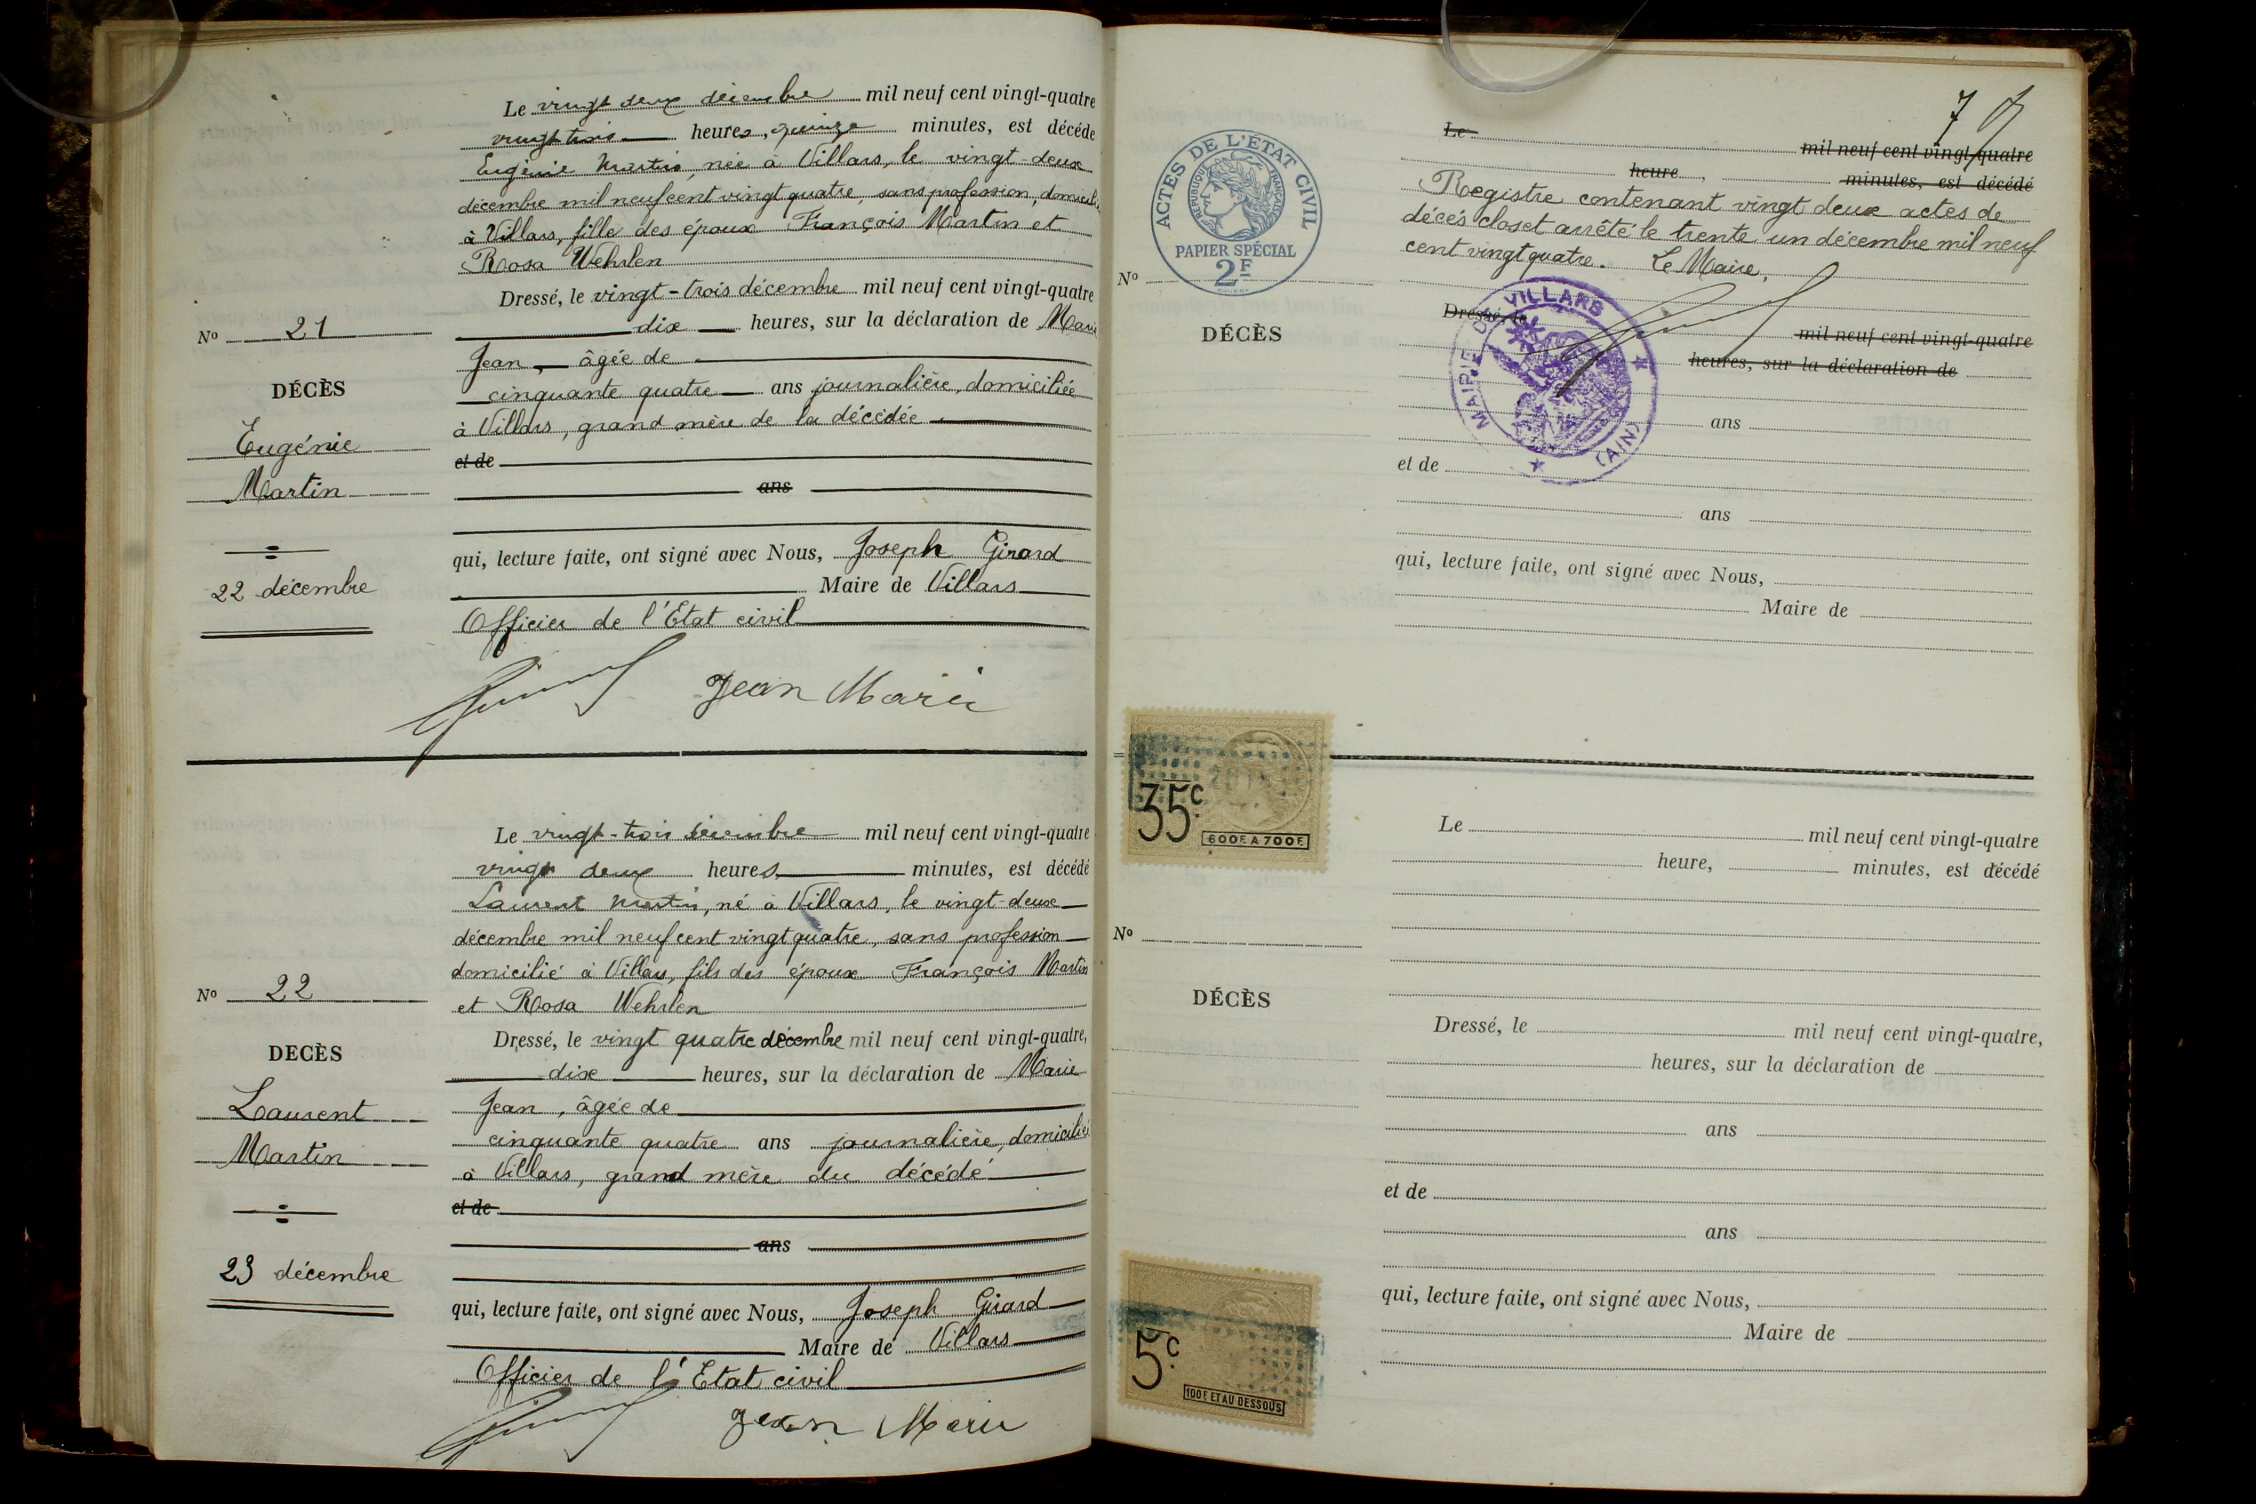 Le vingt deux décembre mil neuf cent vingt-quatre
vingt trois heures, quinze minutes, est décédé
Eugénie Martin, née à Villars, le vingt-deux
décembre mil neuf cent vingt quatre, sans profession, domicili
à Villars, fille des époux François Martin et
Rosa Wehrlen
Dressé, le vingt-trois décembre mil neuf cent vingt-quatre
dix heures, sur la déclaration de Marie
Jean, âgée de
cinquante quatre ans journalière, domiciliée
à Villars, grand mère de la décédée
et de
ans
qui, lecture faite, ont signé avec Nous, Joseph Girard
Maire de Villars
Officier de l'Etat civil
Jean Marie
No 21
DÉCÈS
Eugénie
Martin
22 décembre
Le vingt-trois décembre mil neuf cent vingt-quatre
vingt deux heures minutes, est décédé
Laurent Martin, né à Villars, le vingt-deux
décembre mil neuf cent vingt quatre, sans profession
domicilié à Villars, fils des époux François Martin
et Rosa Wehrlen
Dressé, le vingt quatre décembre mil neuf cent vingt-quatre,
dix heures, sur la déclaration de Marie
Jean, âgée de
cinquante quatre ans journalière, domicilié
à Villars, grand mère du décédé
et de
ans
qui, lecture faite, ont signé avec Nous, Joseph Girard
Maire de Villars
Officier de l'Etat civil
Jean Marie
No 22
DECÈS
Laurent
Martin
23 décembre
7
ACTES DE L'ÉTAT CIVIL
RÉPUBLIQUE FRANÇAISE
PAPIER SPÉCIAL
2F
Le mil neuf cent vingt-quatre
heure, minutes, est décédé
Registre contenant vingt deux actes de
décès clos et arrêté le trente un décembre mil neuf
cent vingt quatre. Le Maire,
MAIRIE DE VILLARS
(AIN)
No
DÉCÈS
Dressé, le mil neuf cent vingt-quatre
heures, sur la déclaration de
ans
et de
ans
qui, lecture faite, ont signé avec Nous,
Maire de
35c
600F A 700F
Le mil neuf cent vingt-quatre
heure, minutes, est décédé
No
DÉCÈS
Dressé, le mil neuf cent vingt-quatre,
heures, sur la déclaration de
ans
et de
ans
qui, lecture faite, ont signé avec Nous,
Maire de
5c
100F ET AU DESSOUS